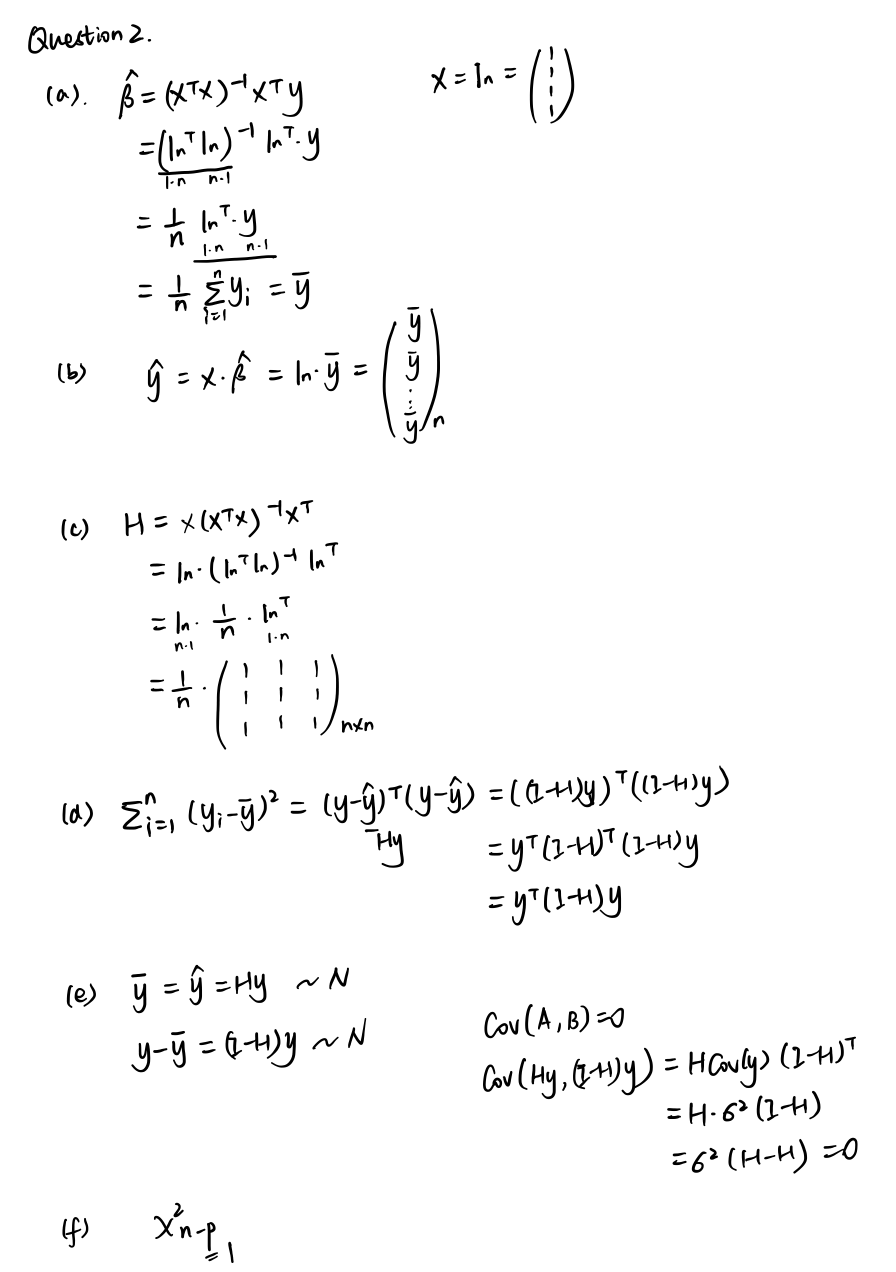 Question 2.
(a). β̂ = (XᵀX)⁻¹ Xᵀ y    X = 1n = (1 1 1 1)
= (1nᵀ 1n)⁻¹ 1nᵀ · y
1·n n·1
= 1/n 1nᵀ · y
1·n n·1
= 1/n Σⁿᵢ₌₁ yi = ȳ
(b) ŷ = X · β̂ = 1n · ȳ = (ȳ ȳ ⋮ ȳ)n
(c) H = X(XᵀX)⁻¹Xᵀ
= 1n · (1nᵀ 1n)⁻¹ 1nᵀ
= 1n · 1/n · 1nᵀ
n·1 1·n
= 1/n · (1 1 1
1 1 1
1 1 1)n×n
(d) Σⁿᵢ₌₁ (yi - ȳ)² = (y - ŷ)ᵀ(y - ŷ) = ((I-H)y)ᵀ((I-H)y)
Hy = yᵀ(I-H)ᵀ(I-H)y
= yᵀ(I-H)y
(e) ȳ = ŷ = Hy ~ N
y - ȳ = (I-H)y ~ N
Cov(A,B) = 0
Cov(Hy, (I-H)y) = H Cov(y) (I-H)ᵀ
= H · 6² (I-H)
= 6² (H-H) = 0
(f) X²n-p
= 1